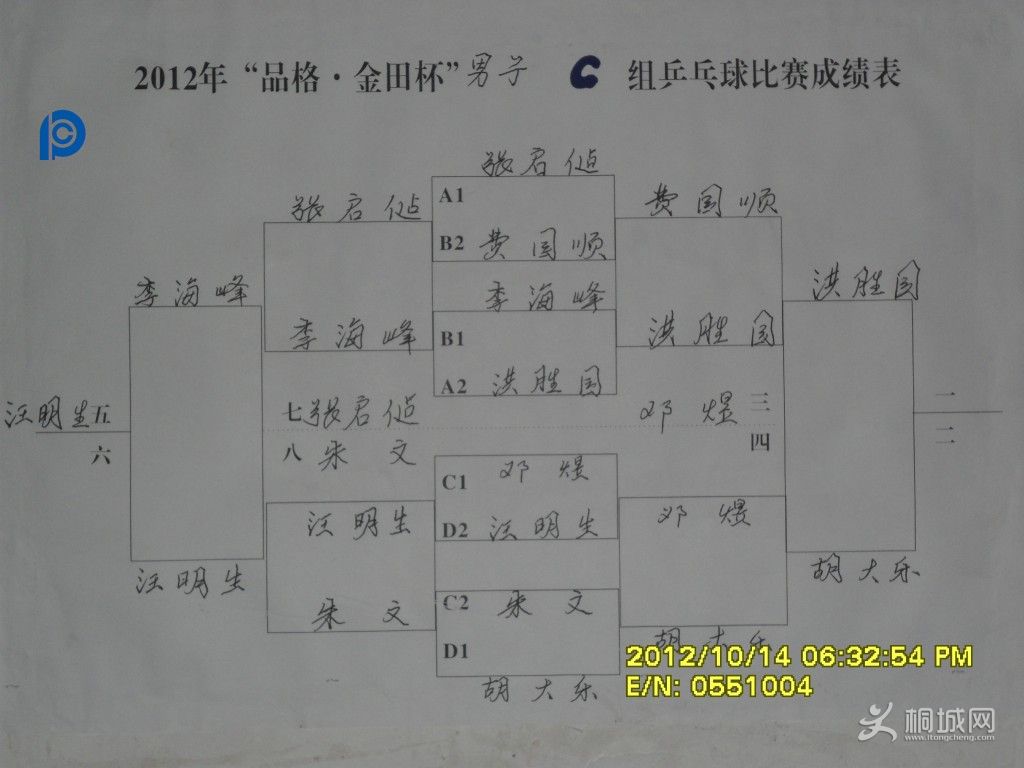 2012年“品格·金田杯”男子 C 组乒乓球比赛成绩表
张君
A1
张君
费国顺
B2 费国顺
李海峰
李海峰
洪胜国
B1
李海峰
洪胜国
A2 洪胜国
七 张君
邓煜 三
一
汪明生 五
二
六
八 朱文
四
C1 邓煜
汪明生
D2 汪明生
邓煜
汪明生
胡大乐
C2 朱文
朱文
胡大乐
D1
胡大乐
2012/10/14 06:32:54 PM
E/N: 0551004
桐城网
www.itongcheng.com